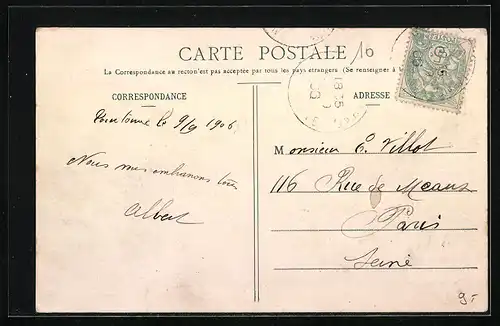 CARTE POSTALE
10
La Correspondance au recto n'est pas acceptée par tous les pays étrangers (Se renseigner à
CORRESPONDANCE
ADRESSE
le 9/9 1906
Nous vous embrassons tous
Albert
Monsieur E. Villot
116 Rue de Meaux
Paris
Seine
18 35
9-